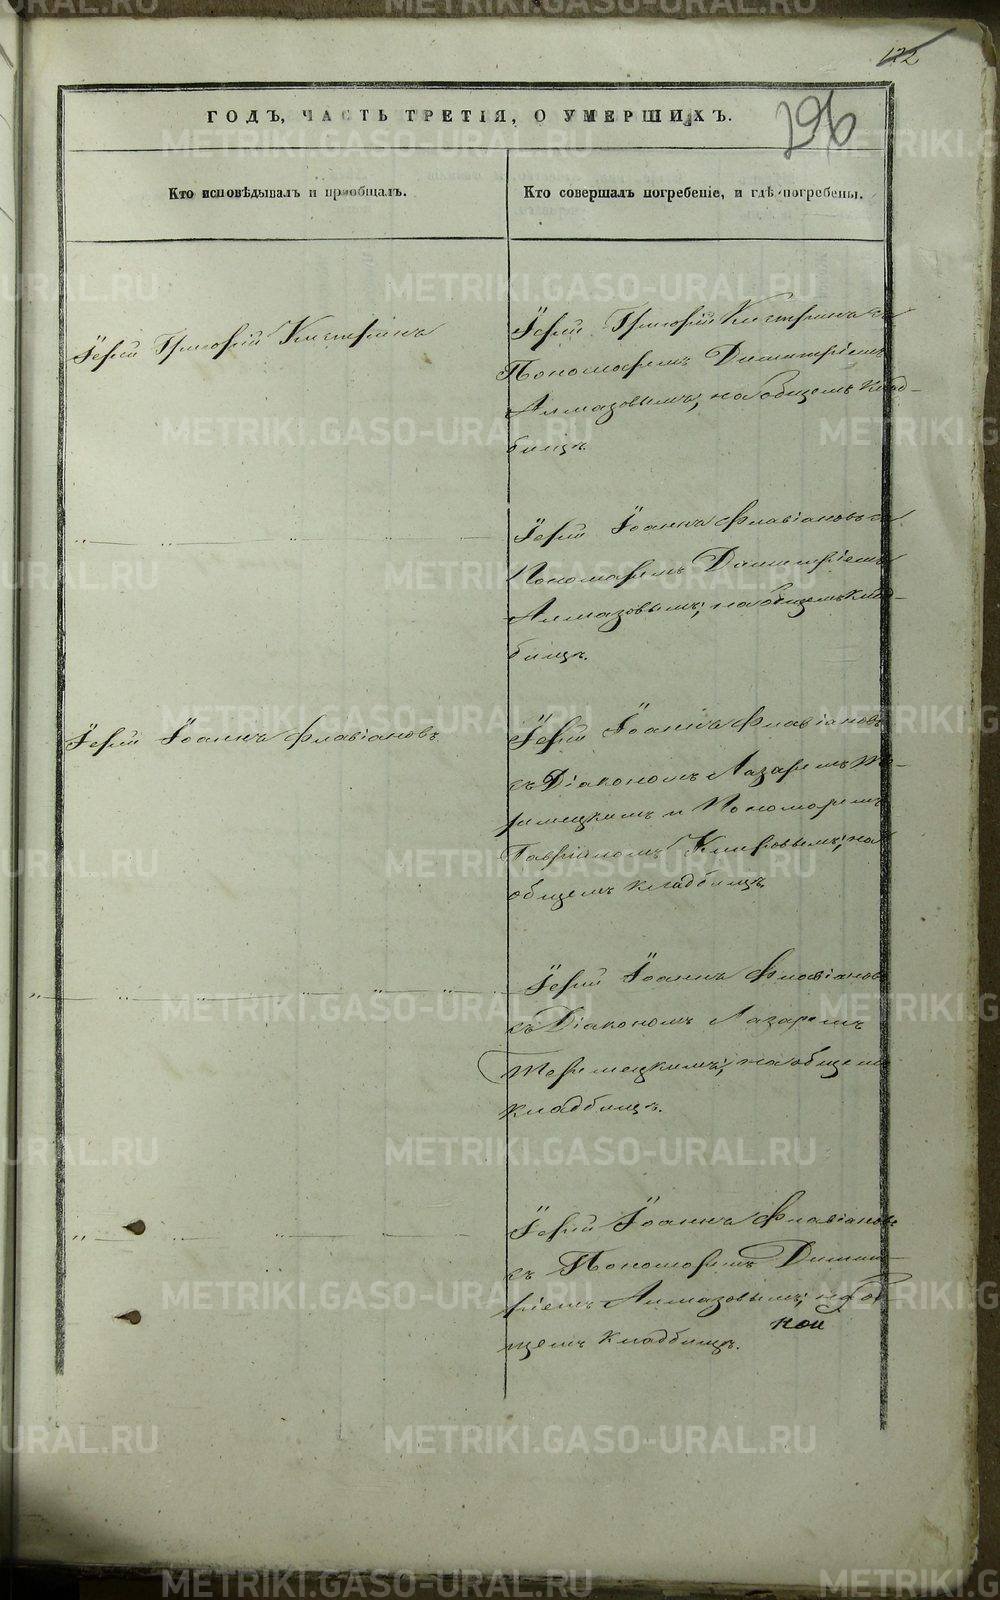 122
296
ГОДЪ, ЧАСТЬ ТРЕТІЯ, О УМЕРШИХЪ.
Кто исповѣдывалъ и пріобщалъ.
Кто совершалъ погребеніе, и гдѣ погребены.
Іерей Григорій Кистринъ
Іерей Григорій Кистринъ съ
Пономаремъ Димитріемъ
Алмазовымъ; на общемъ клад-
бищѣ.
Іерей Іоаннъ Флавіановъ съ
Пономаремъ Димитріемъ
Алмазовымъ; на общемъ клад-
бищѣ.
Іерей Іоаннъ Флавіановъ
Іерей Іоаннъ Флавіановъ
съ Діакономъ Лазаремъ
и Пономаремъ
Гавріиломъ на
общемъ кладбищѣ
Іерей Іоаннъ Флавіановъ
съ Діакономъ Лазаремъ
на общемъ
кладбищѣ.
Іерей Іоаннъ Флавіановъ
съ Пономаремъ Димит-
ріемъ Алмазовымъ; на об-
щемъ кладбищѣ.
METRIKI.GASO-URAL.RU